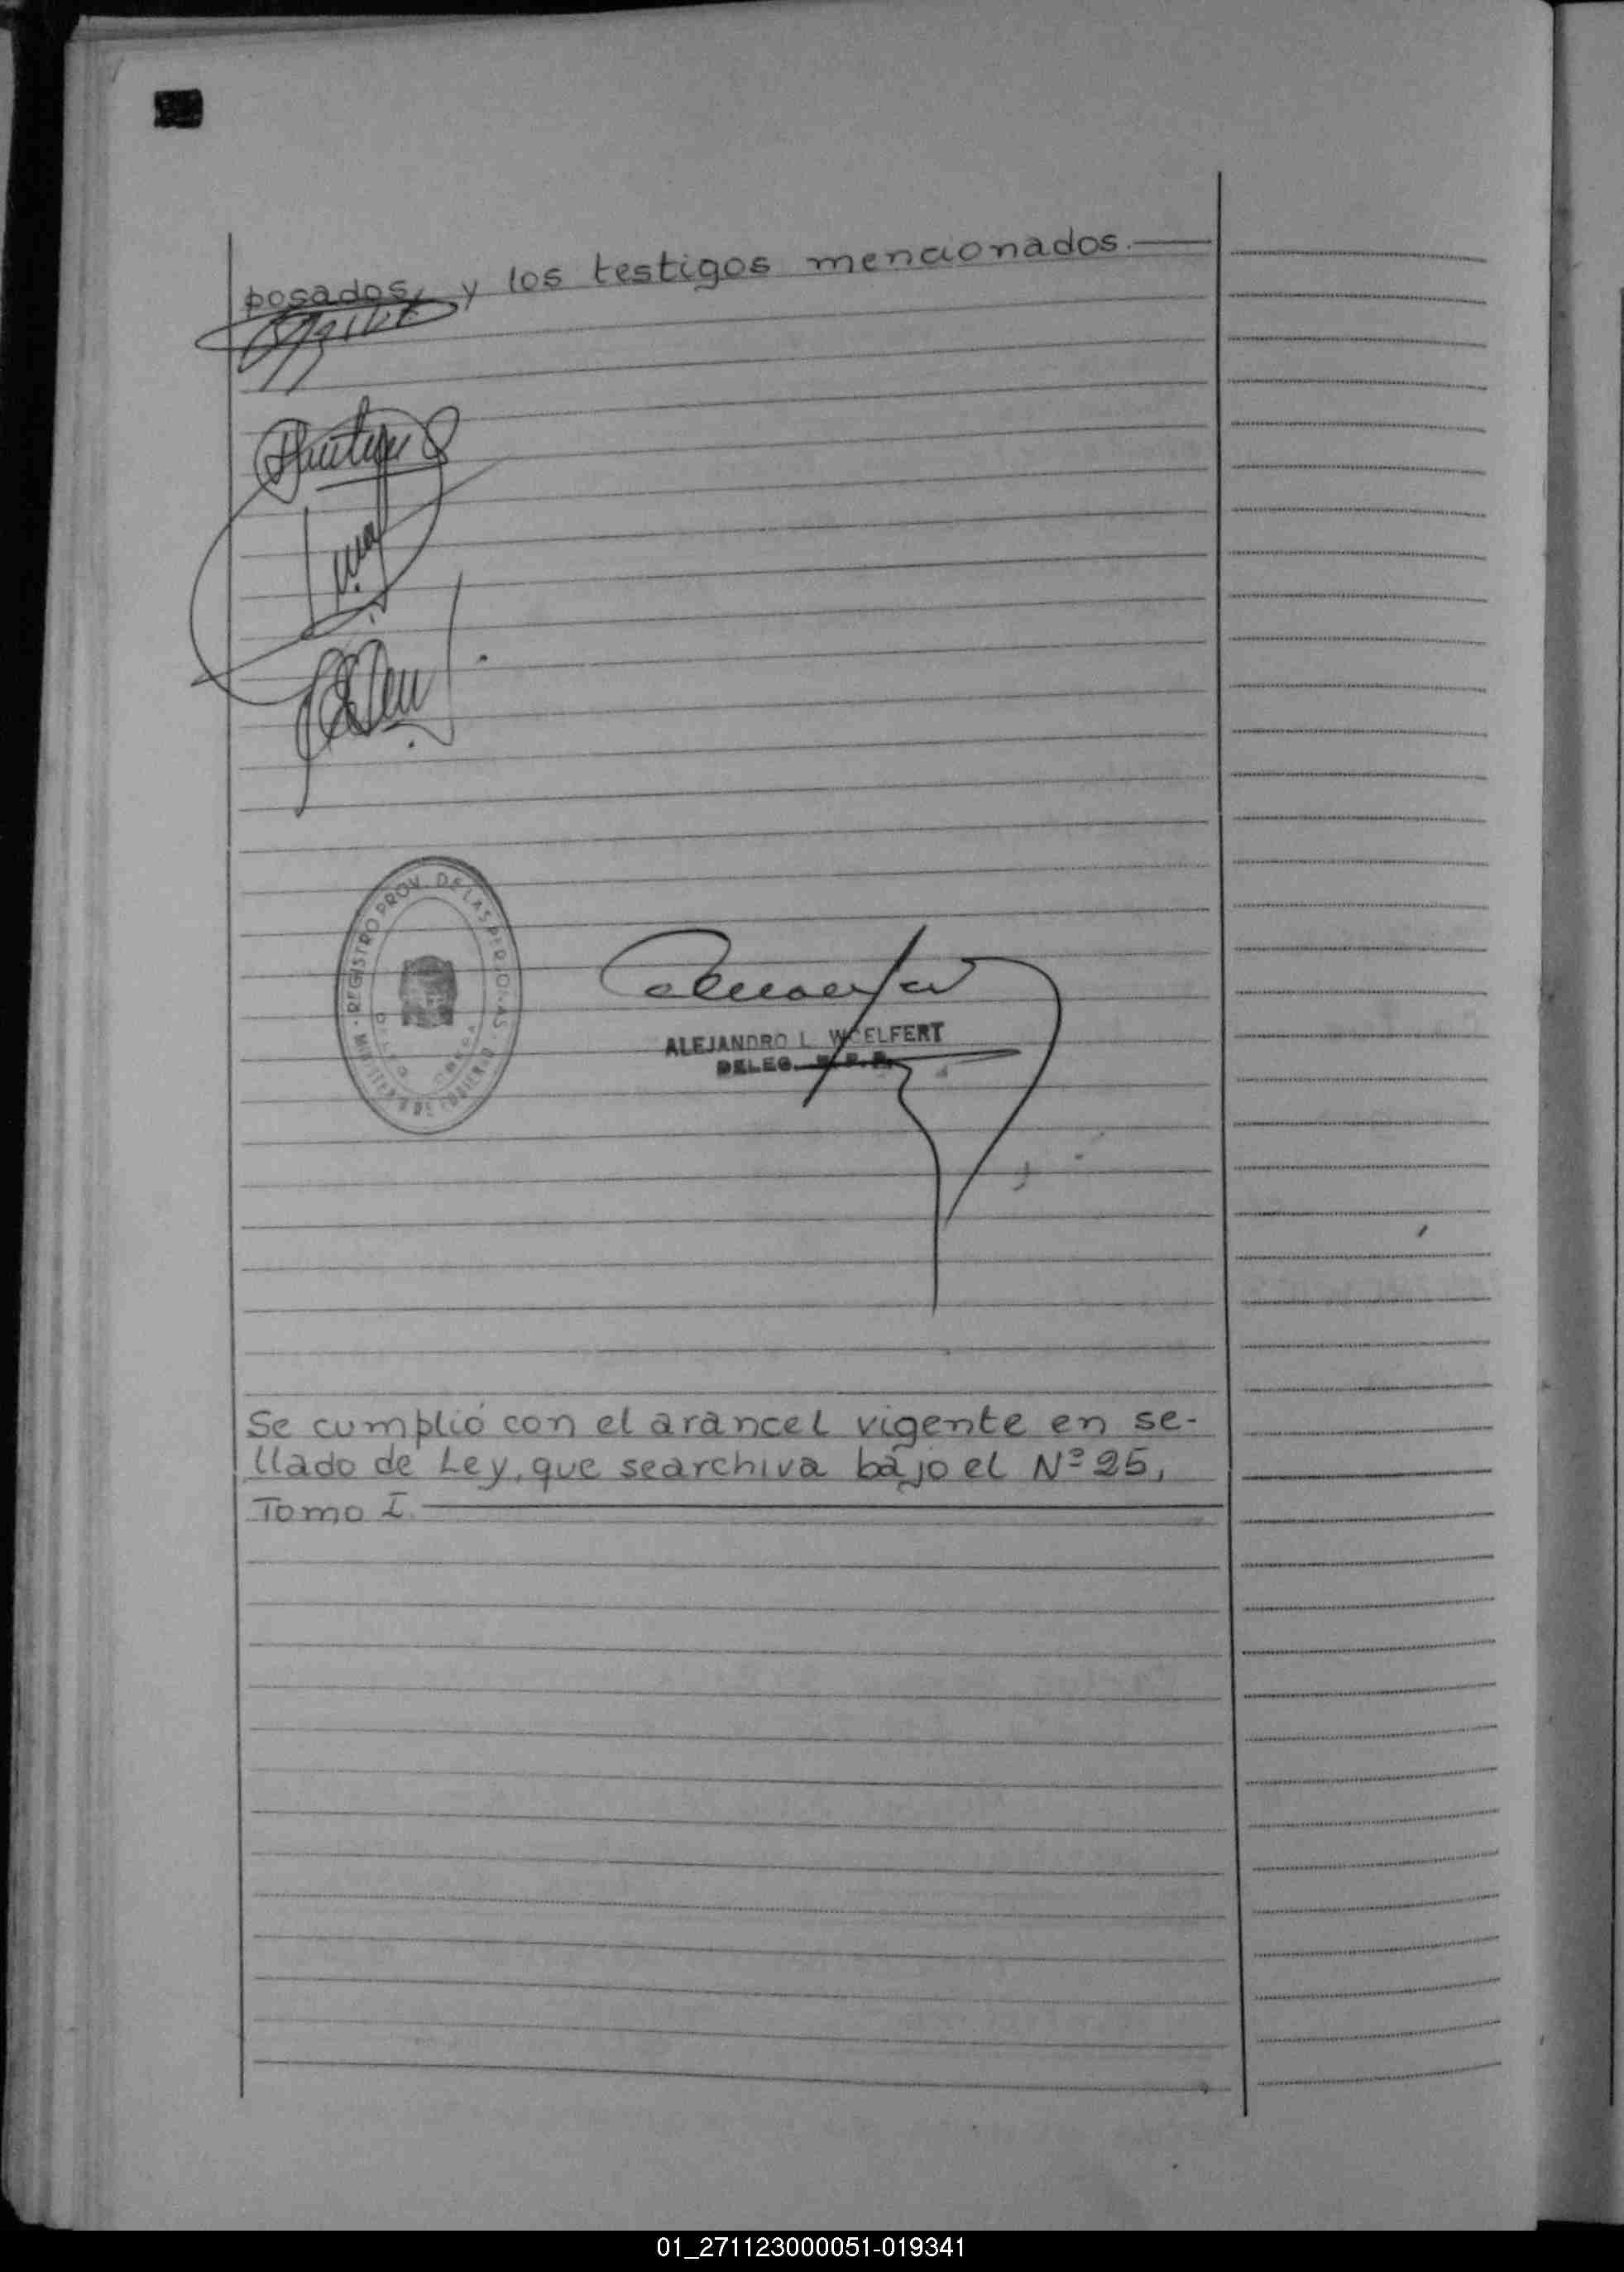 posados, y los testigos mencionados.
REGISTRO PROV. DE LAS PERSONAS
MINISTERIO DE GOBIERNO
ALEJANDRO L. WOELFERT
DELEG. R. P. P.
Se cumplió con el arancel vigente en se-
llado de Ley, que se archiva bajo el Nº 25,
Tomo I.
01_271123000051-019341